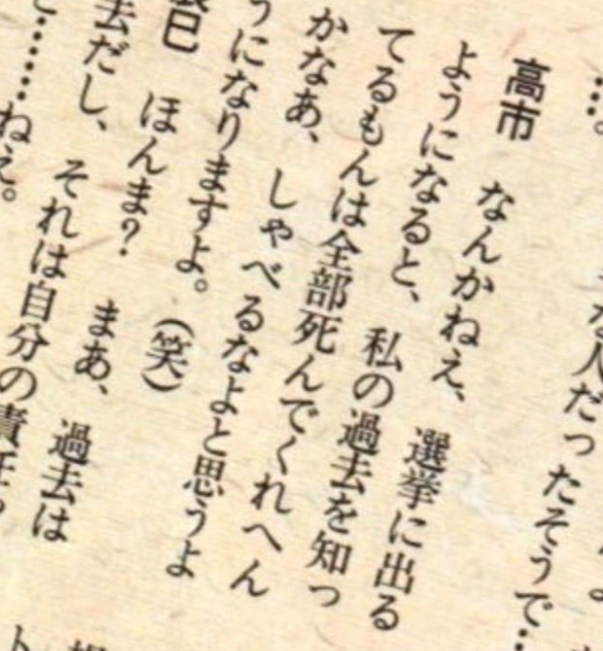 …。
な人だったそうで…
高市　なんかねえ、選挙に出る
ようになると、私の過去を知っ
てるもんは全部死んでくれへん
かなあ、しゃべるなよと思うよ
うになりますよ。（笑）
ほんま？　まあ、過去は
去だし、それは自分の責任
……ねえ。